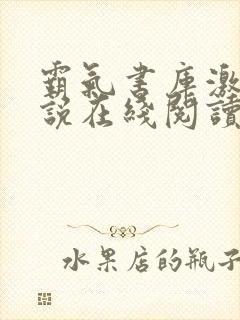 霸氣書庫激
說在綫閱讀
水果店的瓶子